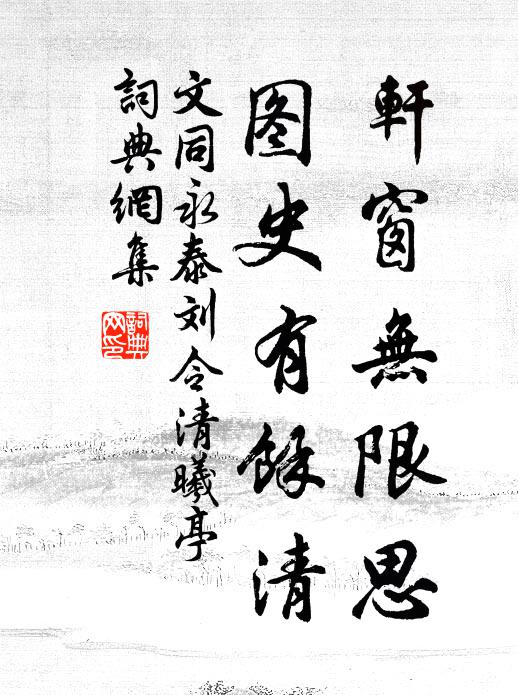 軒窗無限思
图史有餘清
文同永泰刘令清曦亭
詞典網集
詞典网印